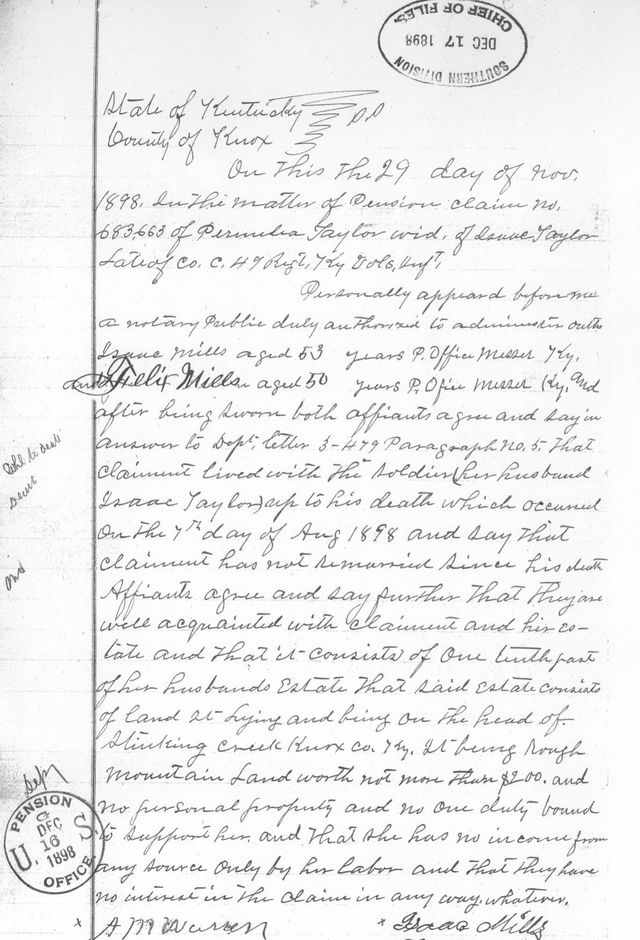 SOUTHERN DIVISION
DEC 17 1898
CHIEF OF FILES.
State of Kentucky
County of Knox SS
On this the 29 day of Nov.
1898. In the matter of Pension claim no.
683,663 of Permelia Taylor wid. of Isaac Taylor
Late of Co. C. 47 Regt, Ky Vols, Inft,
Personally appeard before me
a notary Public duly authorized to administer oaths
Isaac Mills aged 53 years P. Office Messer Ky.
and Felix Mills aged 50 years P. Ofice Messer Ky. and
after being sworn both affiants agree and say in
answer to Dept. letter 3-479 Paragraph No. 5. That
claiment lived with the soldier (her husband
Isaac Taylor) up to his death which occured
On the 7th day of Aug 1898 and say that
claiment has not remarried since his death
Affiants agree and say further that they are
well acquainted with claiment and her es-
tate and that it consists of One tenth part
of her husbands Estate that said Estate consists
of land 2t Lying and being on the head of
Stinking Creek Knox Co. Ky. It being Rough
Mountain Land worth not more than $200. and
no personal property and no one duty bound
to support her. and that she has no income from
any source only by her Labor and that they have
no interest in the claim in any way. whatever.
x A M Warren x Isaac Mills
U. S. PENSION OFFICE
DEC 16 1898